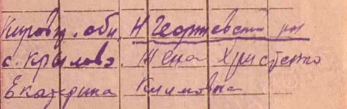 Кировогр. обл. Н Георгиевский р-н
с. Крылово. Жена Христенко
Екатерина Климовна